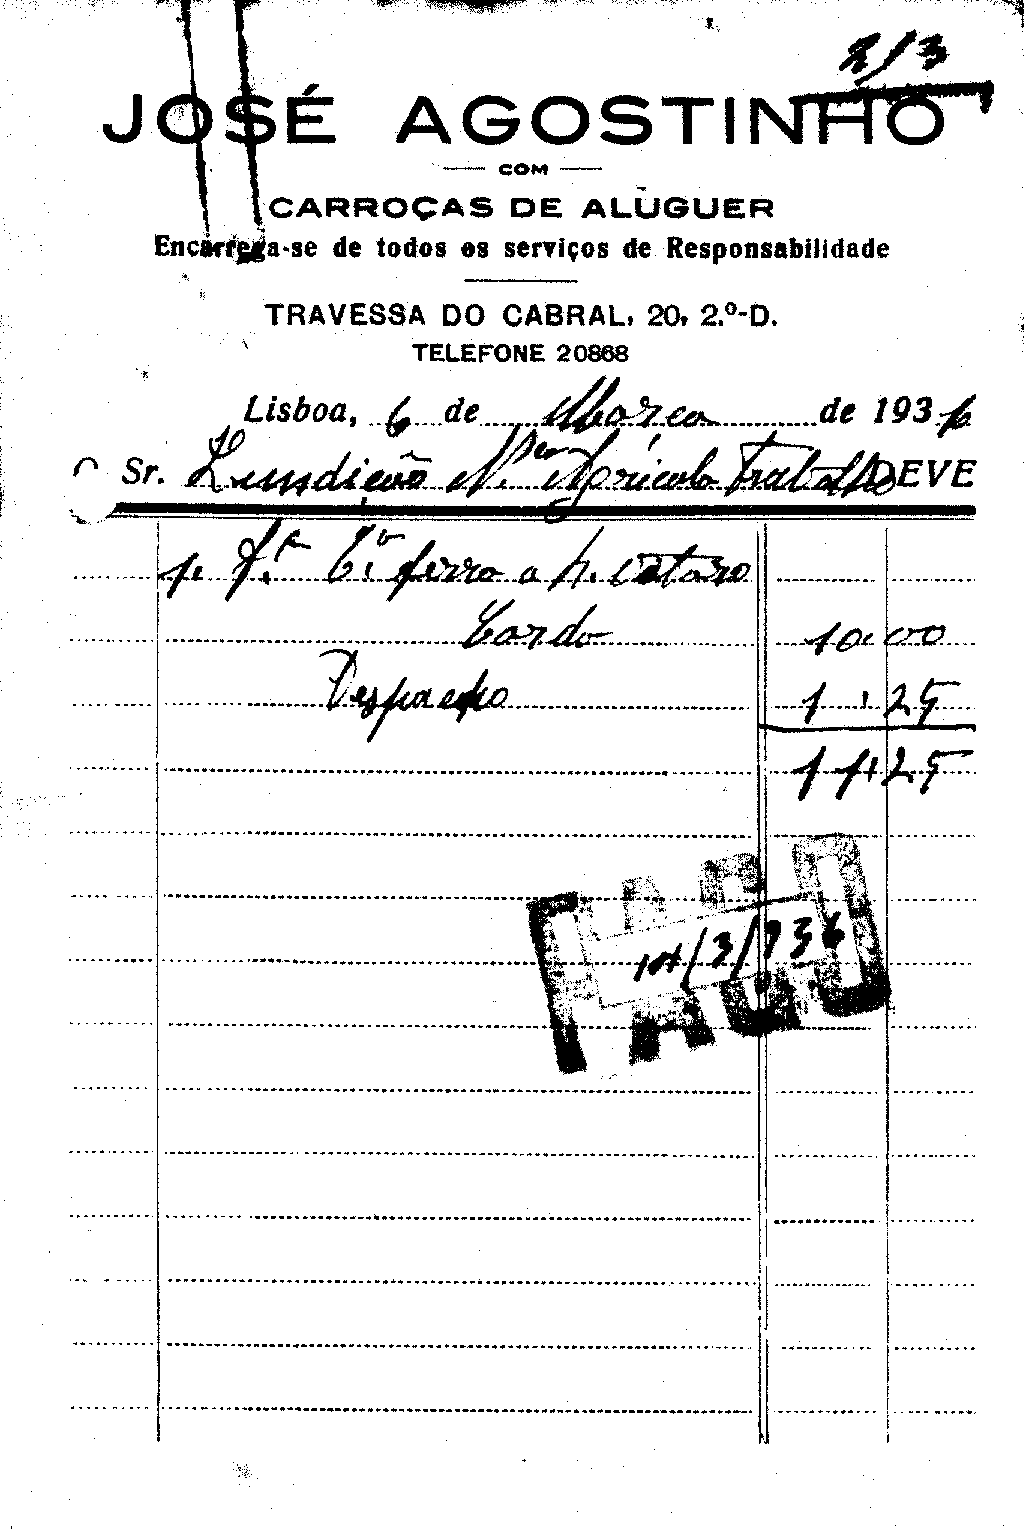 2/3
JOSÉ AGOSTINHO
COM
CARROÇAS DE ALUGUER
Encarrega-se de todos os serviços de Responsabilidade
TRAVESSA DO CABRAL, 20, 2.º-D.
TELEFONE 20868
Lisboa, 6 de Março de 1936
Sr. DEVE
ferro a
10,00
Despacho 1,25
11,25
PAGO
14/3/936